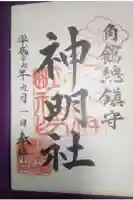 角館總鎮守
神明社
平成二十六年九月一日